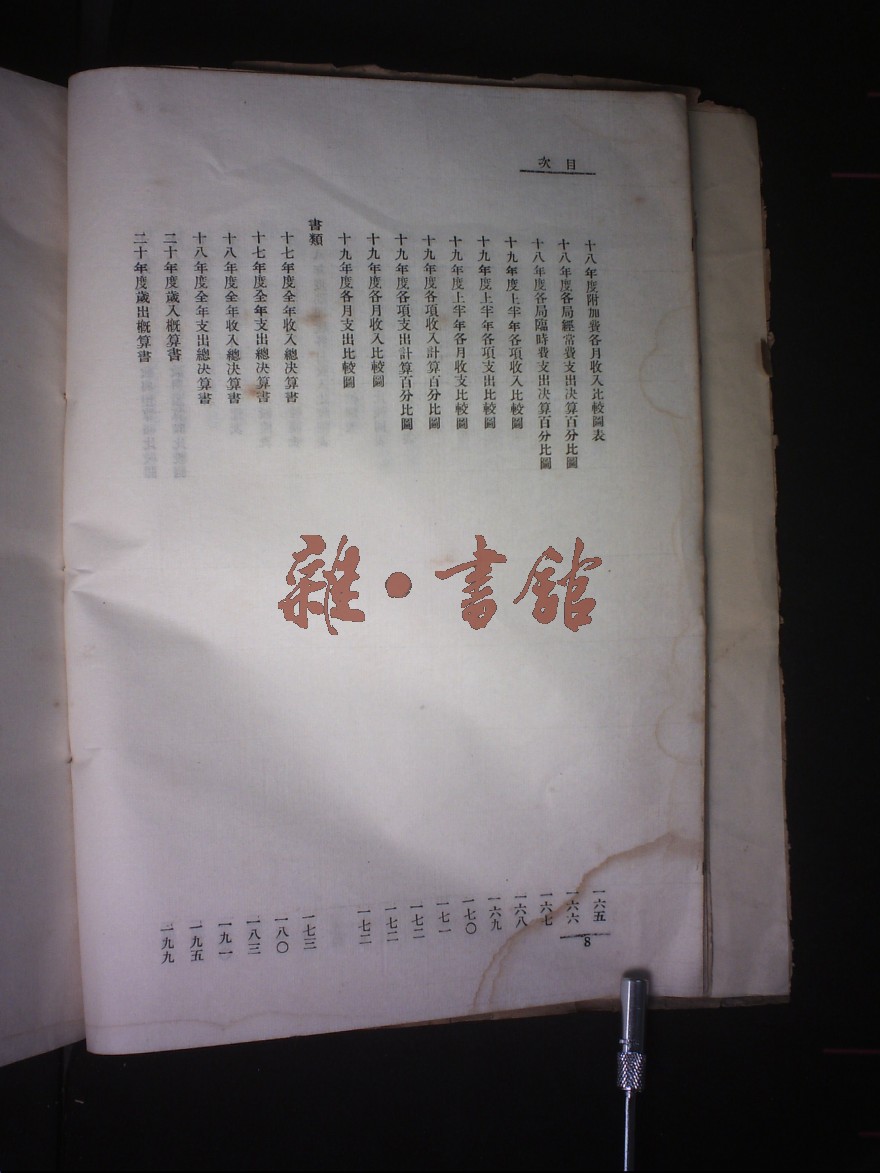 目次
十八年度附加費各月收入比較圖表 一六五
十八年度各局經常費支出决算百分比圖 一六六
十八年度各局臨時費支出决算百分比圖 一六七
十九年度上半年各項收入比較圖 一六八
十九年度上半年各項支出比較圖 一六九
十九年度上半年各月收支比較圖 一七〇
十九年度各項收入計算百分比圖 一七一
十九年度各項支出計算百分比圖 一七二
十九年度各月收入比較圖 一七二
十九年度各月支出比較圖 一七二
書類
十七年度全年收入總决算書 一七三
十七年度全年支出總决算書 一八〇
十八年度全年收入總决算書 一八三
十八年度全年支出總决算書 一九一
二十年度歲入概算書 一九五
二十年度歲出概算書 一九九
8
雜·書館